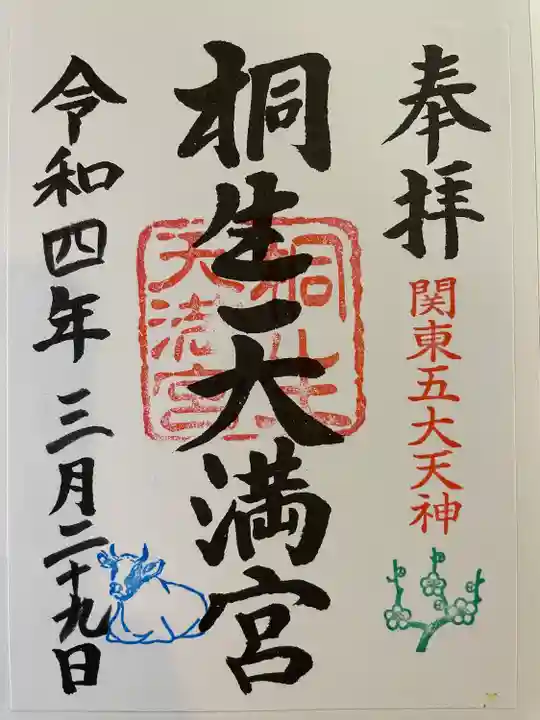 奉拝
関東五大天神
桐生天満宮
桐生
天満宮
令和四年三月二十九日